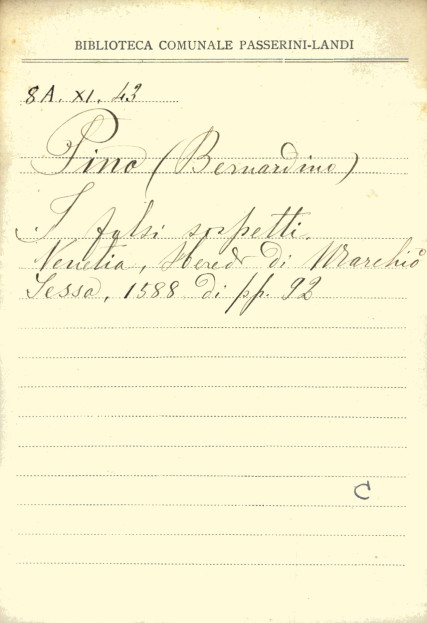 BIBLIOTECA COMUNALE PASSERINI-LANDI
8A. XI. 43
Pino (Bernardino)
I falsi sospetti.
Venetia, Heredi di Marchiò
Sessa, 1588 di pp. 92
C